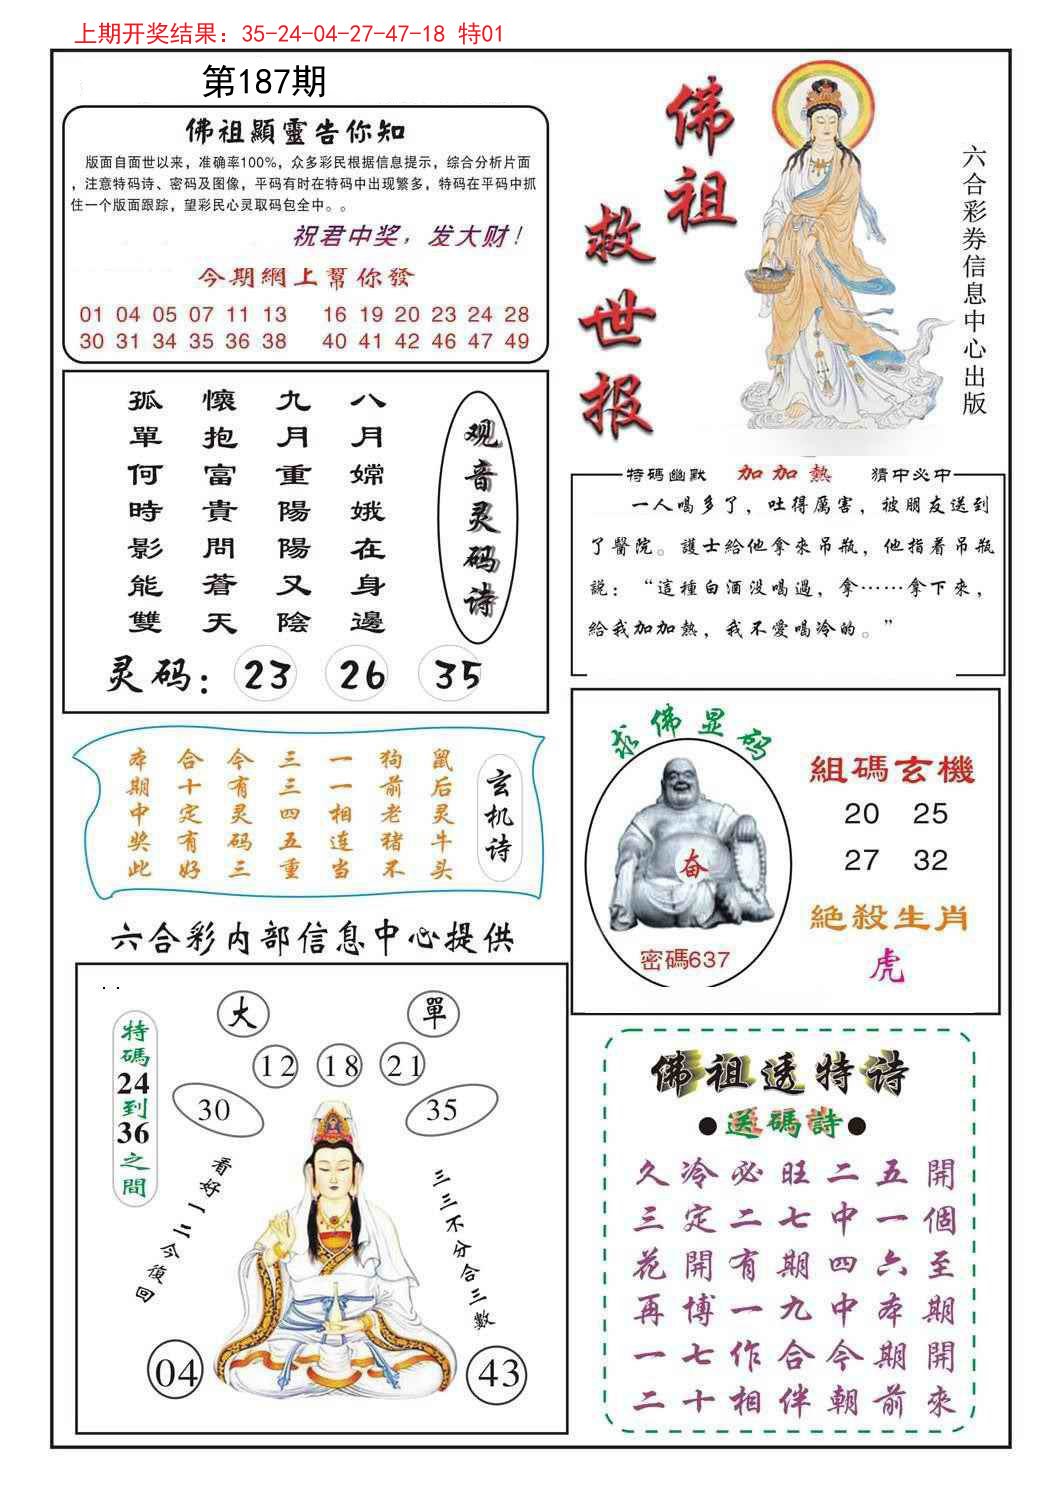 上期开奖结果：35-24-04-27-47-18 特01
第187期
佛祖顯靈告你知
版面自面世以来，准确率100%，众多彩民根据信息提示，综合分析片面
，注意特码诗、密码及图像，平码有时在特码中出现繁多，特码在平码中抓
住一个版面跟踪，望彩民心灵取码包全中。。
祝君中奖，发大财！
今期網上幫你發
01 04 05 07 11 13 16 19 20 23 24 28
30 31 34 35 36 38 40 41 42 46 47 49
佛祖
救世报
六合彩券信息中心出版
观音灵码诗
八月嫦娥在身邊
九月重陽陽又陰
懷抱富貴問蒼天
孤單何時影能雙
灵码：23 26 35
特碼幽默 加加熱 猜中必中
一人喝多了，吐得厲害，被朋友送到
了醫院。護士給他拿來吊瓶，他指着吊瓶
説：“這種白酒没喝過，拿……拿下來，
給我加加熱，我不愛喝冷的。”
玄机诗
鼠后灵牛头
狗前老猪不
一一相连当
三三四五重
今有灵码三
合十定有好
本期中奖此
求佛显码
奋
密碼637
組碼玄機
20 25
27 32
絶殺生肖
虎
六合彩内部信息中心提供
大 單
12 18 21
30 35
特碼24到36之間
看好一二今復回
三三不分合三數
04 43
佛祖透特诗
●送碼詩●
久冷必旺二五開
三定二七中一個
花開有期四六至
再博一九中本期
一七作合今期開
二十相伴朝前來